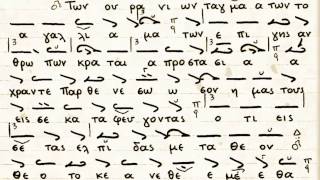 Των ου ρρ νι ων ταγ μα α των το
α γαλ λι α μα των ε πι γης αν
θρω πων κρα ται α προ στα σι α α
χραν τε Παρ θε νε σω ω σον η μας τους
εις σε κα τα φευ γον τας ο τι εις
σε τας ελ πι δας με τα θε ον
Θε ο το κε α νε θε ε με ε θα